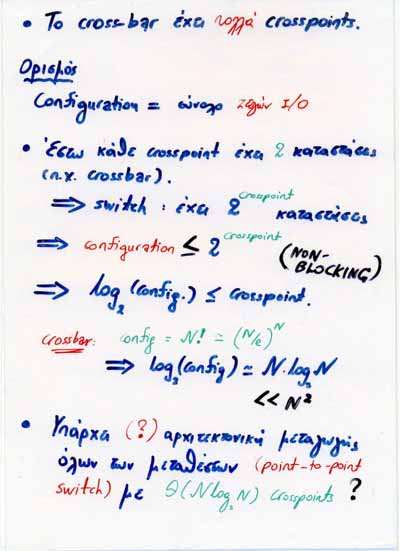 • Το cross-bar έχει πολλά crosspoints.
Ορισμός
Configuration = σύνολο ζευγών I/O
• Έστω κάθε crosspoint έχει 2 καταστάσεις
(π.χ. crossbar).
⇒ switch : έχει 2^crosspoint καταστάσεις
⇒ configuration ≤ 2^crosspoint (NON-
BLOCKING)
⇒ log₂ (config.) ≤ crosspoint.
crossbar: config = N! ≃ (N/e)^N
⇒ log₂(config) ≃ N·log₂N
<< N²
• Υπάρχει (?) αρχιτεκτονική μεταγωγής
όλων των μεταθέσεων (point-to-point
switch) με Θ(Nlog₂N) crosspoints ?